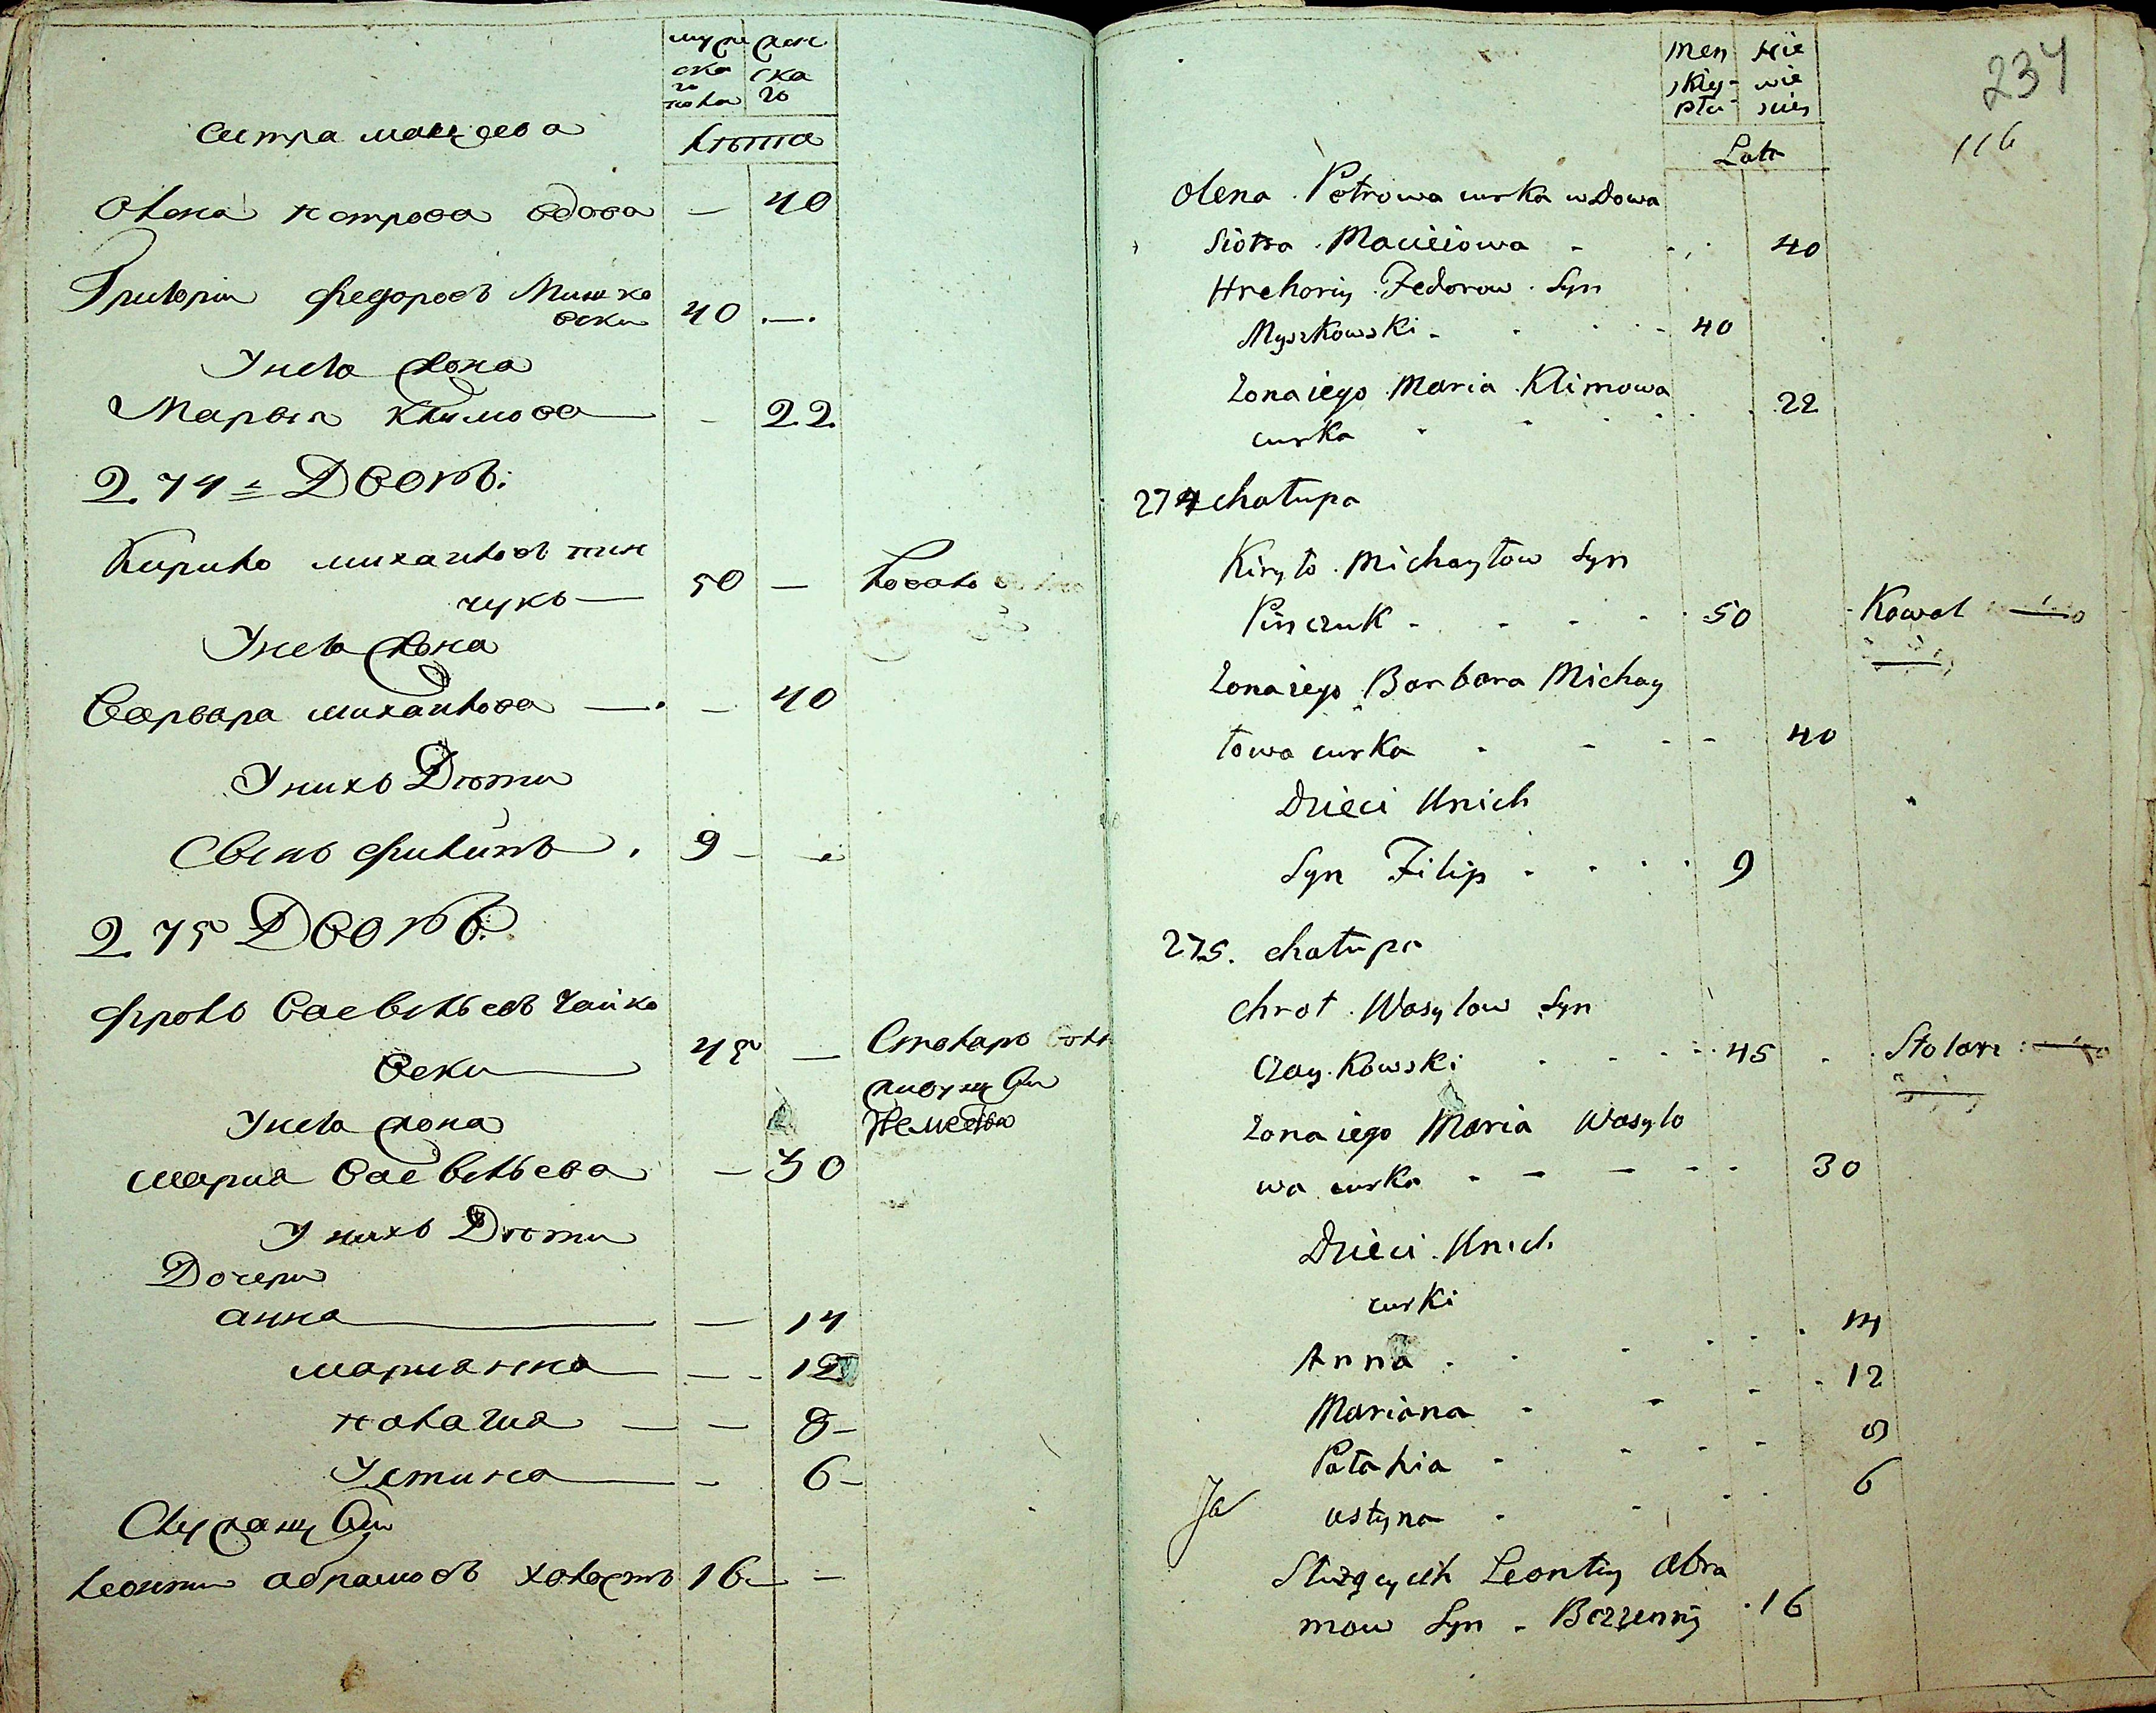 муж ска го пола
жен ска го
Лѣта
Систра мацѣева
Олена петрова вдова — 40
Григории федоровъ Мишко
вски 40 —
У нево жона
Марья климова — 22
274 Дворъ:
Кирило михаиловъ пин
чукъ — 50 — коваль
У нево жона
Варвара михаилова — — 40
У нихъ Дѣти
Сынъ филипъ 9 —
275 Дворъ
фролъ Васильевъ Чайко
вски 45 — Столяръ
У нево жона
мария Васильева — 30
У нихъ Дѣти
Дочери
анна — 14
марианна — 12
палагия — 8
Устина — 6
Служащи
леонти абрамовъ холостъ 16 —
234
116
Men skiey płci
Nie wie sciey
Lata
Olena Petrowa curka wdowa
Siotra Macieiowa 40
Hrehoriy Fedorow Syn
Myszkowski 40
Zona iego Maria Klimowa
curka 22
274 chałupa
Kiryło Michayłow Syn
Pinczuk 50 Kowal
Zona iego Barbara Michay
łowa curka 40
Dzieci Unich
Syn Filip 9
275. chałupa
Chroł Wasylow Syn
Czaykowski 45 Stolarz
Zona iego Maria Wasylo
wa curka 30
Dzieci Unich
curki
Anna 14
Mariana 12
Pałahia 8
Ustyna 6
Służących Leontiy Abra
mow Syn Bezzenny 16